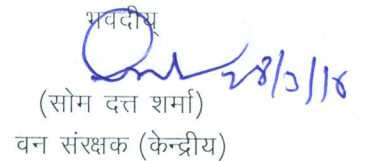 भवदीय्
28/3/18
(सोम दत्त शर्मा)
वन संरक्षक (केन्द्रीय)